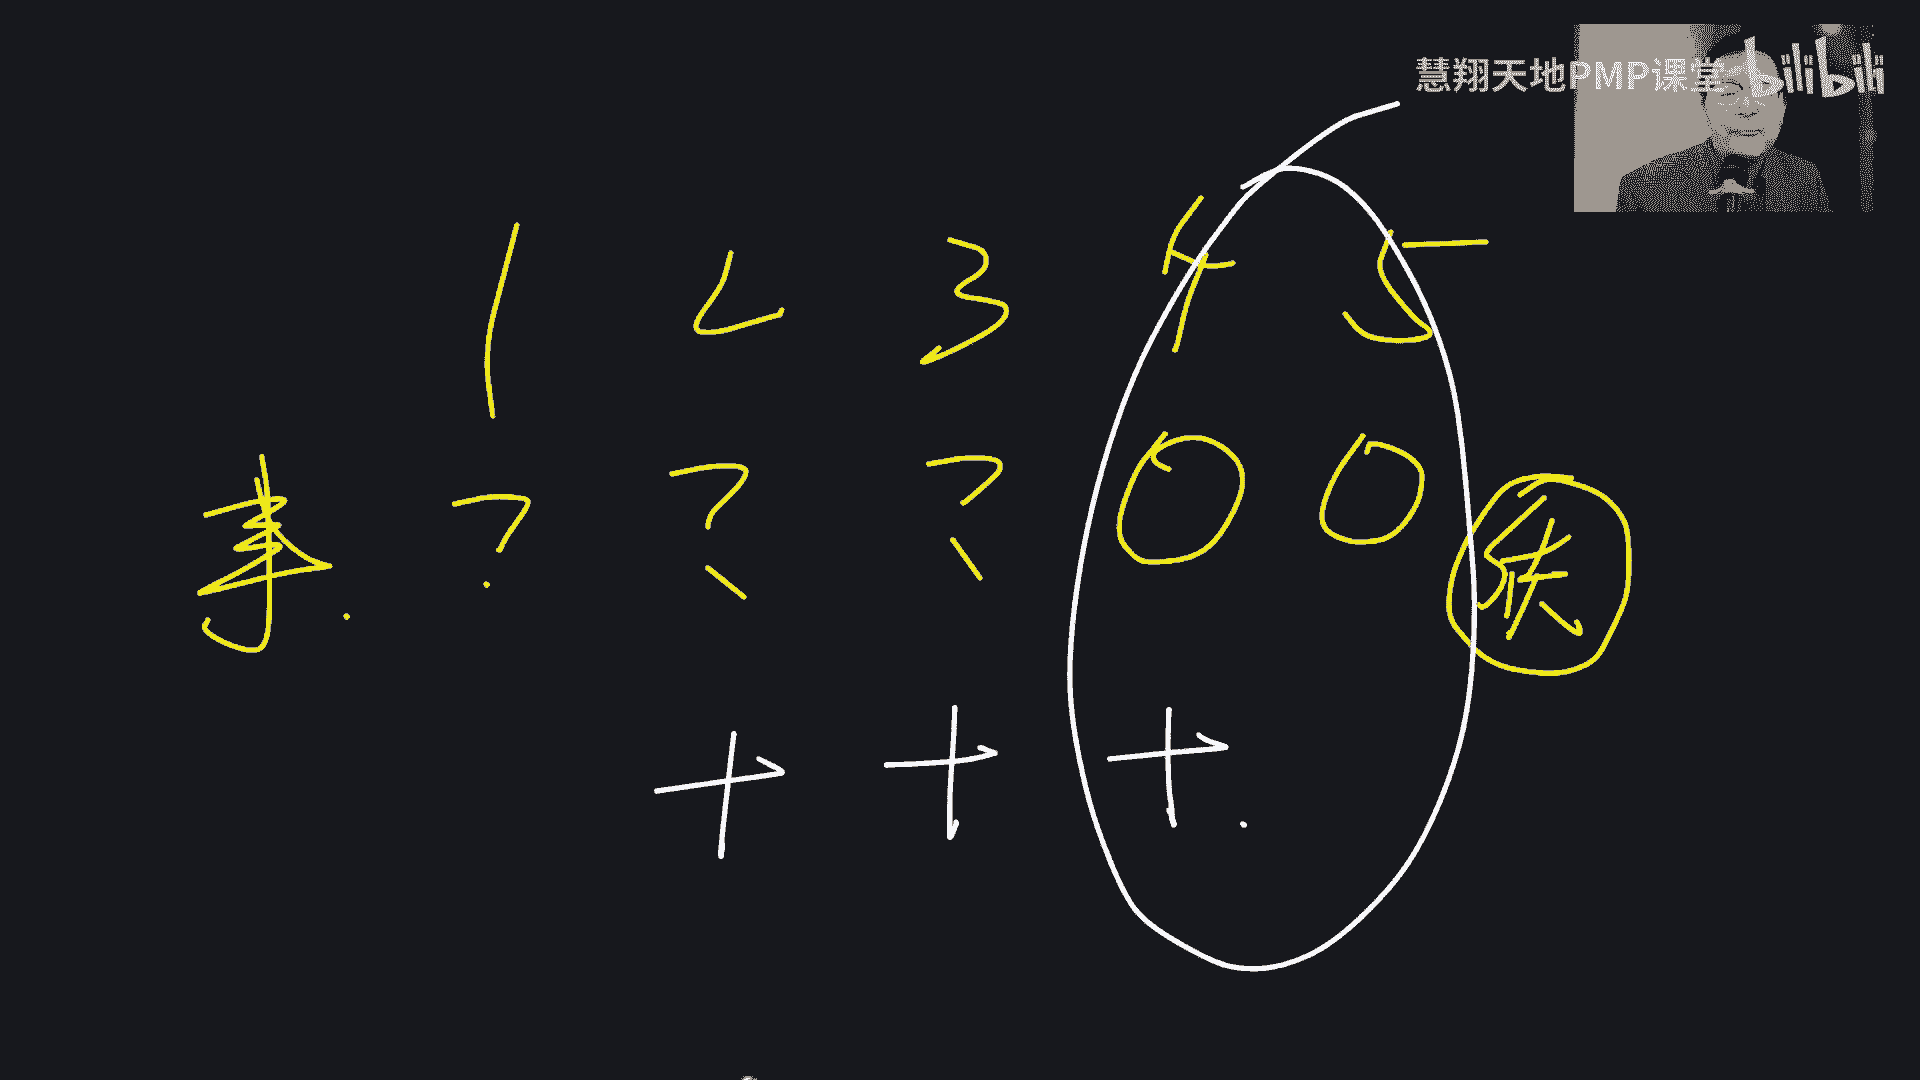 慧翔天地PMP课堂 bilibili
1 2 3 4 5
事. ? ? ? 0 0
+ + + .